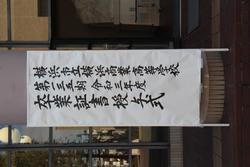 横浜市立横浜商業高等学校
第一三五期 令和三年度
卒業証書授与式